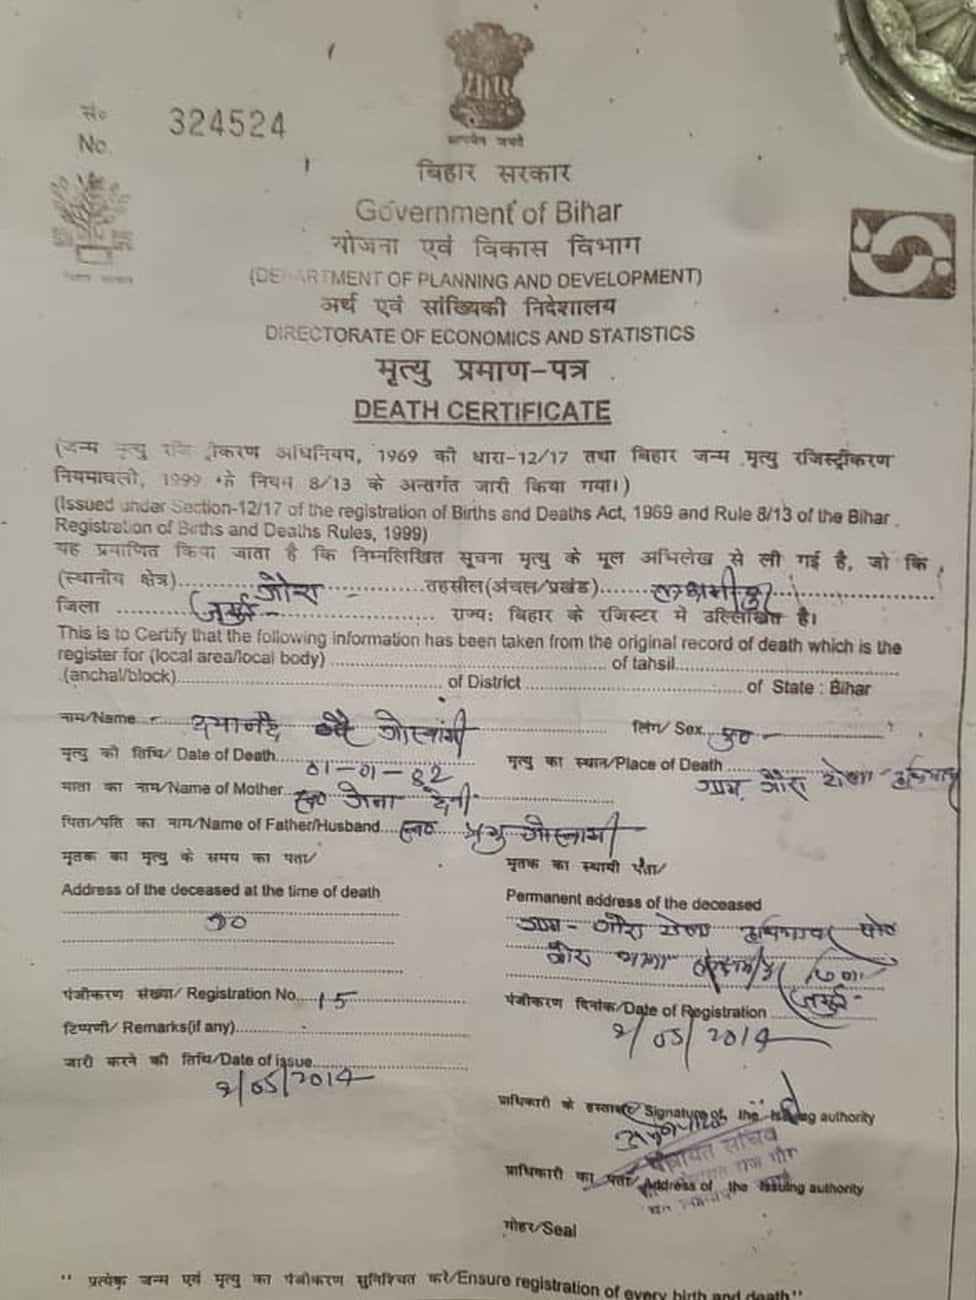 सं०
No. 324524
सत्यमेव जयते
बिहार सरकार
Government of Bihar
योजना एवं विकास विभाग
(DEPARTMENT OF PLANNING AND DEVELOPMENT)
अर्थ एवं सांख्यिकी निदेशालय
DIRECTORATE OF ECONOMICS AND STATISTICS
मृत्यु प्रमाण-पत्र
DEATH CERTIFICATE
(जन्म मृत्यु रजिस्ट्रीकरण अधिनियम, 1969 की धारा-12/17 तथा बिहार जन्म मृत्यु रजिस्ट्रीकरण
नियमावली, 1999 के नियम 8/13 के अन्तर्गत जारी किया गया।)
(Issued under Section-12/17 of the registration of Births and Deaths Act, 1969 and Rule 8/13 of the Bihar
Registration of Births and Deaths Rules, 1999)
यह प्रमाणित किया जाता है कि निम्नलिखित सूचना मृत्यु के मूल अभिलेख से ली गई है, जो कि
(स्थानीय क्षेत्र) गौरा तहसील(अंचल/प्रखंड)
जिला जमुई राज्य: बिहार के रजिस्टर में उल्लिखित है।
This is to Certify that the following information has been taken from the original record of death which is the
register for (local area/local body) of tahsil
(anchal/block) of District of State : Bihar
नाम/Name गोस्वामी लिंग/ Sex पु०
मृत्यु की तिथि/ Date of Death 01-01-82 मृत्यु का स्थान/Place of Death ग्राम गौरा
माता का नाम/Name of Mother स्व० देवी
पिता/पति का नाम/Name of Father/Husband स्व० गोस्वामी
मृतक का मृत्यु के समय का पता/ मृतक का स्थायी पता/
Address of the deceased at the time of death Permanent address of the deceased
ग्राम- गौरा
गौरा थाना जिला
पंजीकरण संख्या/ Registration No. 15 जमुई
पंजीकरण दिनांक/Date of Registration
टिप्पणी/ Remarks(if any) 2/05/2014
जारी करने की तिथि/Date of issue
2/05/2014
प्राधिकारी के हस्ताक्षर/ Signature of the issuing authority
पंचायत सचिव
प्राधिकारी का पता/ Address of the issuing authority
मोहर/Seal
" प्रत्येक जन्म एवं मृत्यु का पंजीकरण सुनिश्चित करें/Ensure registration of every birth and death"